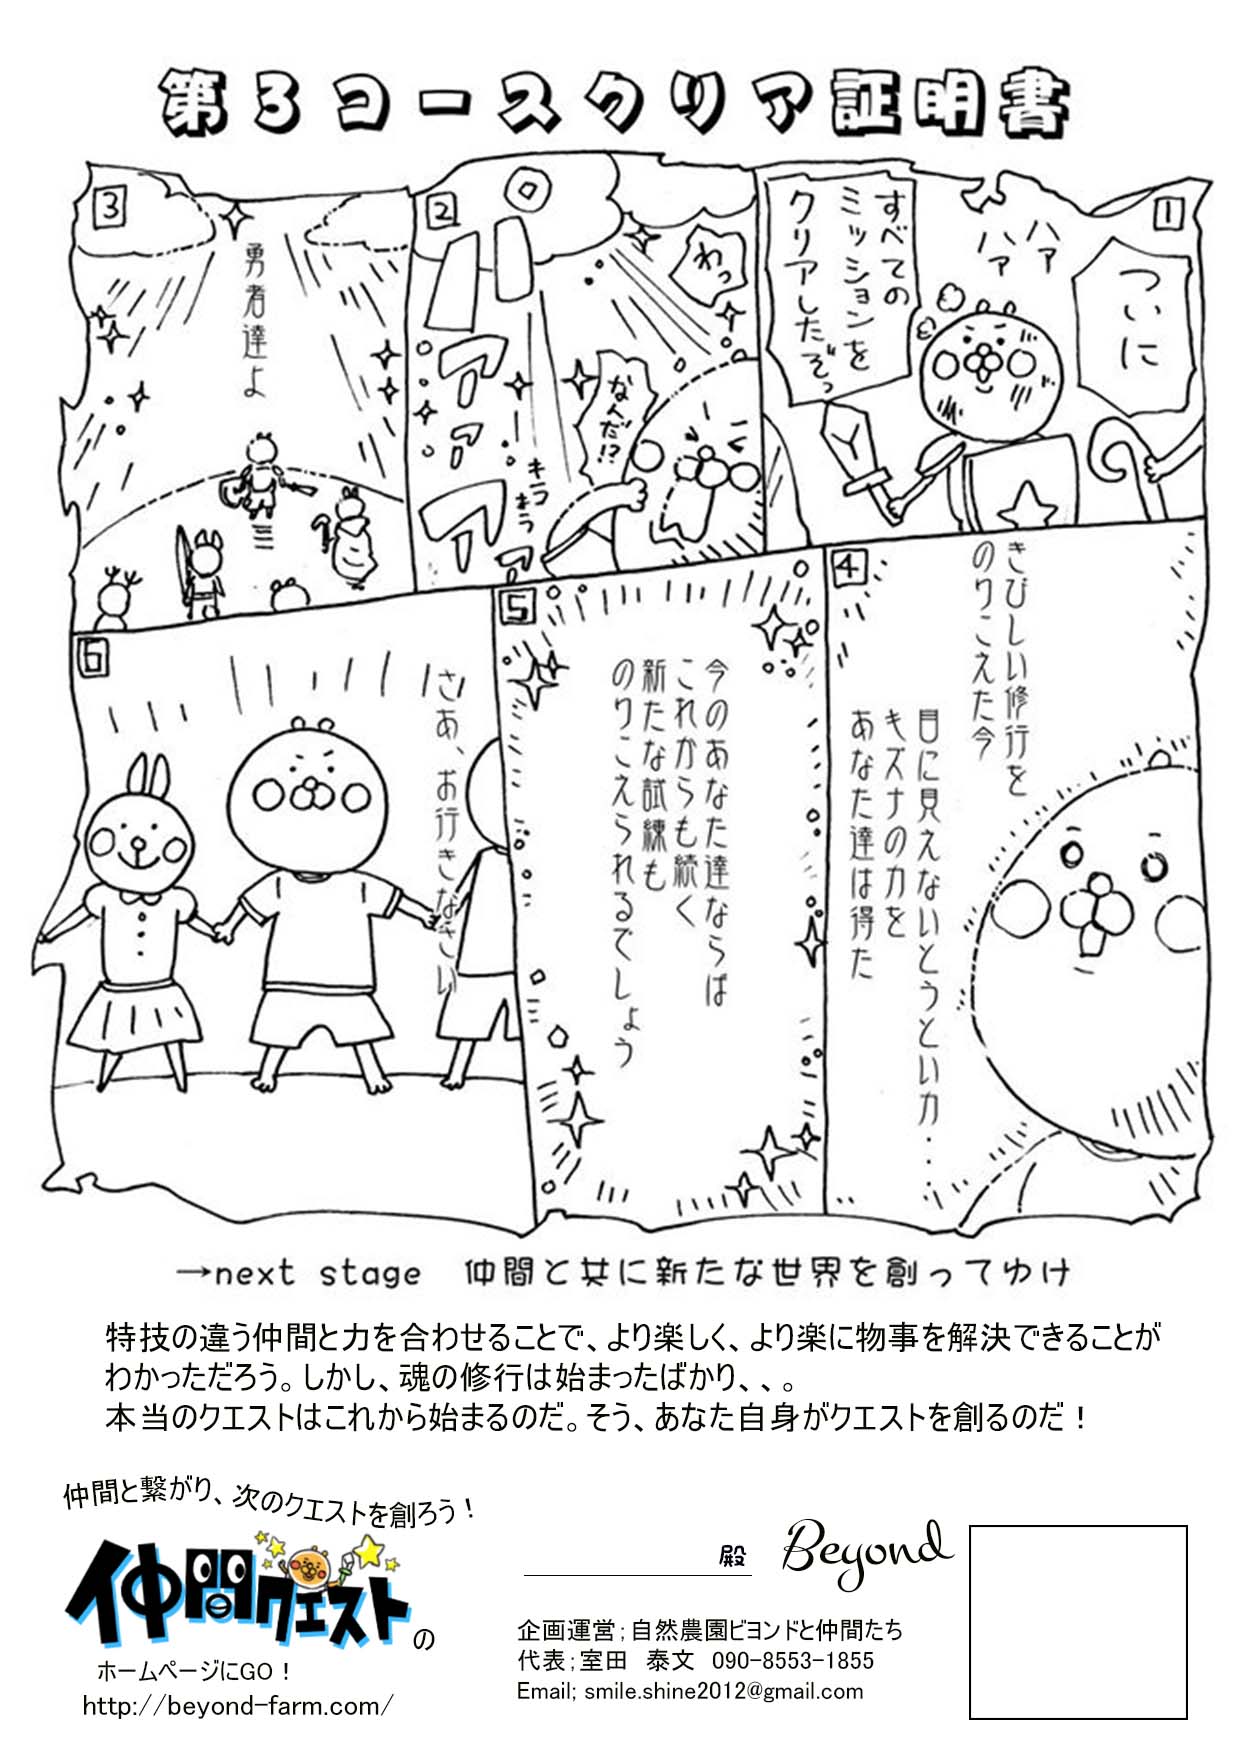 第3コースクリア証明書
1
ついに
ハァ
ハァ
すべての
ミッションを
クリアしたぞっ
2
わっ
なんだ!?
キラ
キラ
パアアアア
3
勇者達よ
4
きびしい修行を
のりこえた今
目に見えないとうとい力‥‥
キズナの力を
あなた達は得た
5
今のあなた達ならば
これからも続く
新たな試練も
のりこえられるでしょう
6
さあ、お行きなさい
→next stage 仲間と共に新たな世界を創ってゆけ
特技の違う仲間と力を合わせることで、より楽しく、より楽に物事を解決できることが
わかっただろう。しかし、魂の修行は始まったばかり、、。
本当のクエストはこれから始まるのだ。そう、あなた自身がクエストを創るのだ！
仲間と繋がり、次のクエストを創ろう！
仲間クエストの
ホームページにGO！
http://beyond-farm.com/
殿
Beyond
企画運営；自然農園ビヨンドと仲間たち
代表；室田 泰文 090-8553-1855
Email; smile.shine2012@gmail.com